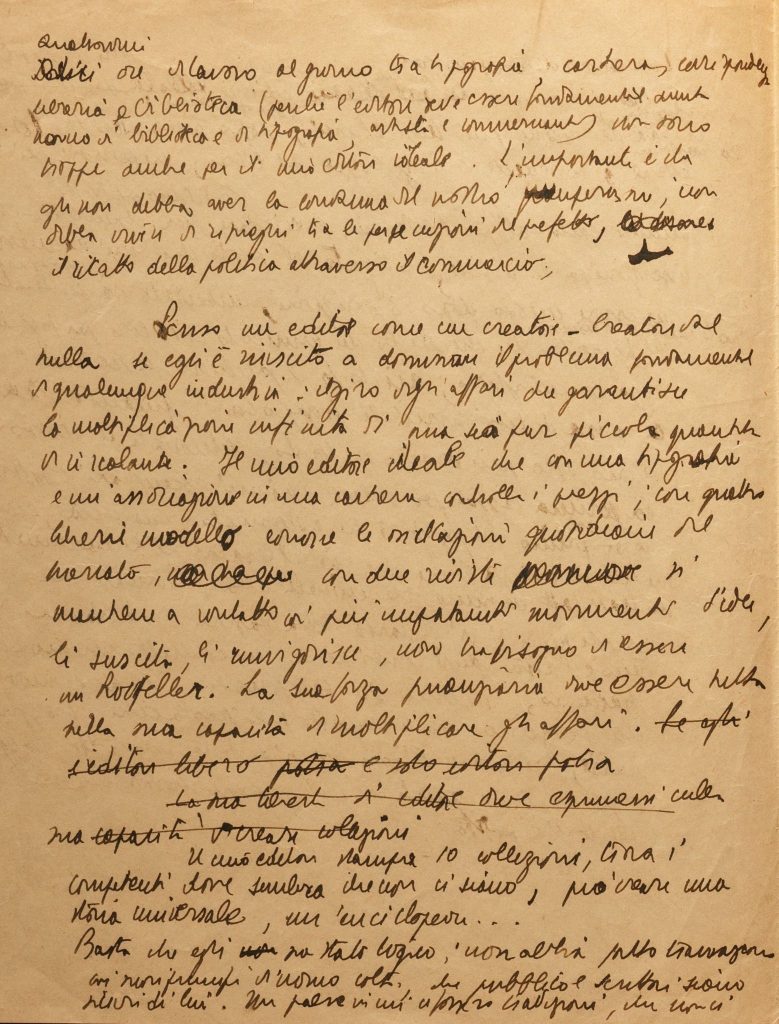 Quattordici
ore di lavoro al giorno tra tipografia, cartiera, corrispondenza,
libreria e biblioteca (perché l'editore deve essere fondamentalmente
uomo di biblioteca e di tipografia, artista e commerciante) non sono
troppe anche per il mio editore ideale. L'importante è che
egli non debba aver la condanna del nostro pauperismo, non
debba vivere di ripieghi tra le persecuzioni del prefetto,
il ricatto della politica attraverso il commercio,
Penso un editore come un creatore - Creatore dal
nulla se egli è riuscito a dominare il problema fondamentale
di qualunque industria: il giro degli affari che garantisce
la moltiplicazione infinita di una sia pur piccola quantità
di circolante. Il mio editore ideale che con una tipografia
e un'associazione in una cartiera controlla i prezzi; con quattro
librerie modello conosce le oscillazioni quotidiane del
mercato, con due riviste si
mantiene a contatto coi più importanti movimenti d'idee,
li suscita, li rinvigorisce, non ha bisogno di essere
un Rockfeller. La sua forza pecuniaria deve essere
nella sua capacità di moltiplicare gli affari. Se egli
è editore libero potrà e solo editore potrà
La sua libertà di editore deve esprimersi nella
sua capacità di creare relazioni
Il mio editore stampa 10 collezioni, trova i
competenti dove sembra che non ci siano, può creare una
storia universale, un'enciclopedia...
Basta che egli sia stato logico, non abbia fatto
ai suoi principi d'uomo colto, che pubblico e scrittori siano
sicuri di lui. Un paese in cui ci fossero tradizioni, che non ci